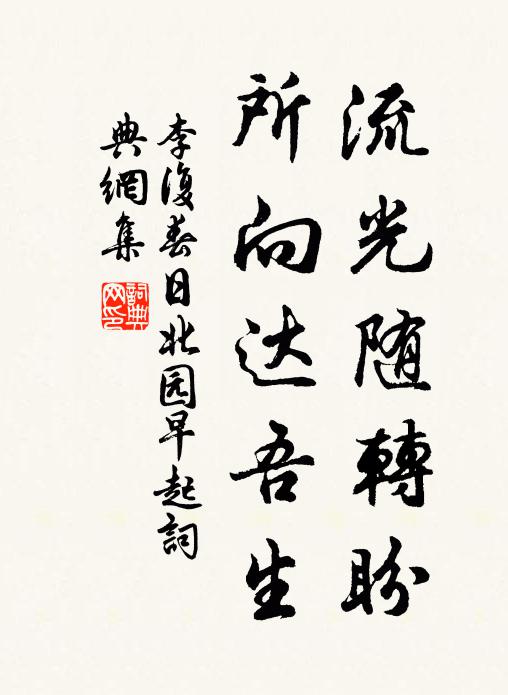 流光随轉盼
所向达吾生
李復春日北园早起詞
典網集
詞典网印